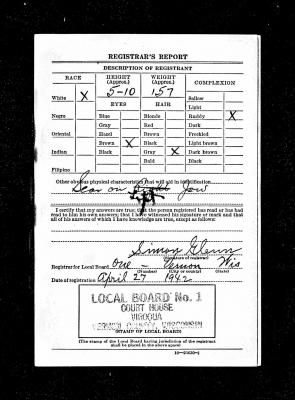 REGISTRAR'S REPORT
DESCRIPTION OF REGISTRANT
RACE
HEIGHT (Approx.)
WEIGHT (Approx.)
COMPLEXION
5-10
157
White X
Sallow
EYES
HAIR
Light
Negro
Blue
Blonde
Ruddy X
Gray
Red
Dark
Oriental
Hazel
Brown
Freckled
Brown X
Black
Light brown
Indian
Black
Gray X
Dark brown
Bald
Black
Filipino
Other obvious physical characteristics that will aid in identification
Scar on Jaw
I certify that my answers are true; that the person registered has read or has had
read to him his own answers; that I have witnessed his signature or mark and that
all of his answers of which I have knowledge are true, except as follows:
Simon Glenn
(Signature of registrar)
Registrar for Local Board One - Vernon Wis
(Number) (City or county) (State)
Date of registration April 27 1942
LOCAL BOARD No. 1
COURT HOUSE
VIROQUA
VERNON COUNTY, WISCONSIN
(STAMP OF LOCAL BOARD)
(The stamp of the Local Board having jurisdiction of the registrant
shall be placed in the above space)